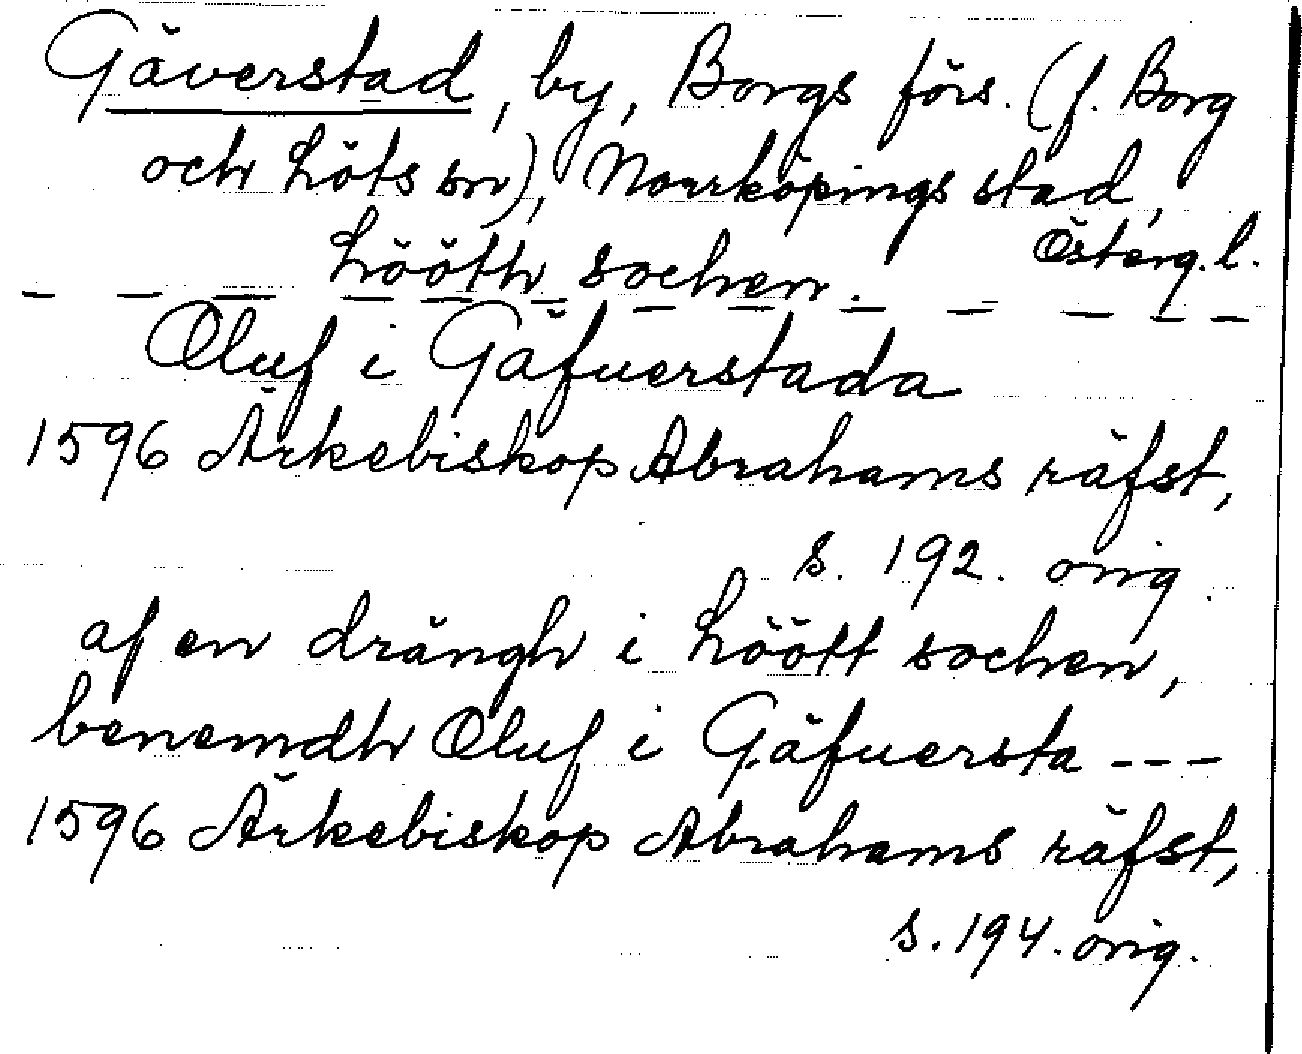 Gäverstad, by, Borgs förs. (f. Borg
och Löts sn), Norrköpings stad,
Österg. l.
Lööth sochen.
Oluf i Gäfuerstada
1596 Ärkebiskop Abrahams räfst,
s. 192. orig.
af en drängh i Löött sochen,
benemdh Oluf i Gäfuersta ---
1596 Ärkebiskop Abrahams räfst,
s. 194. orig.